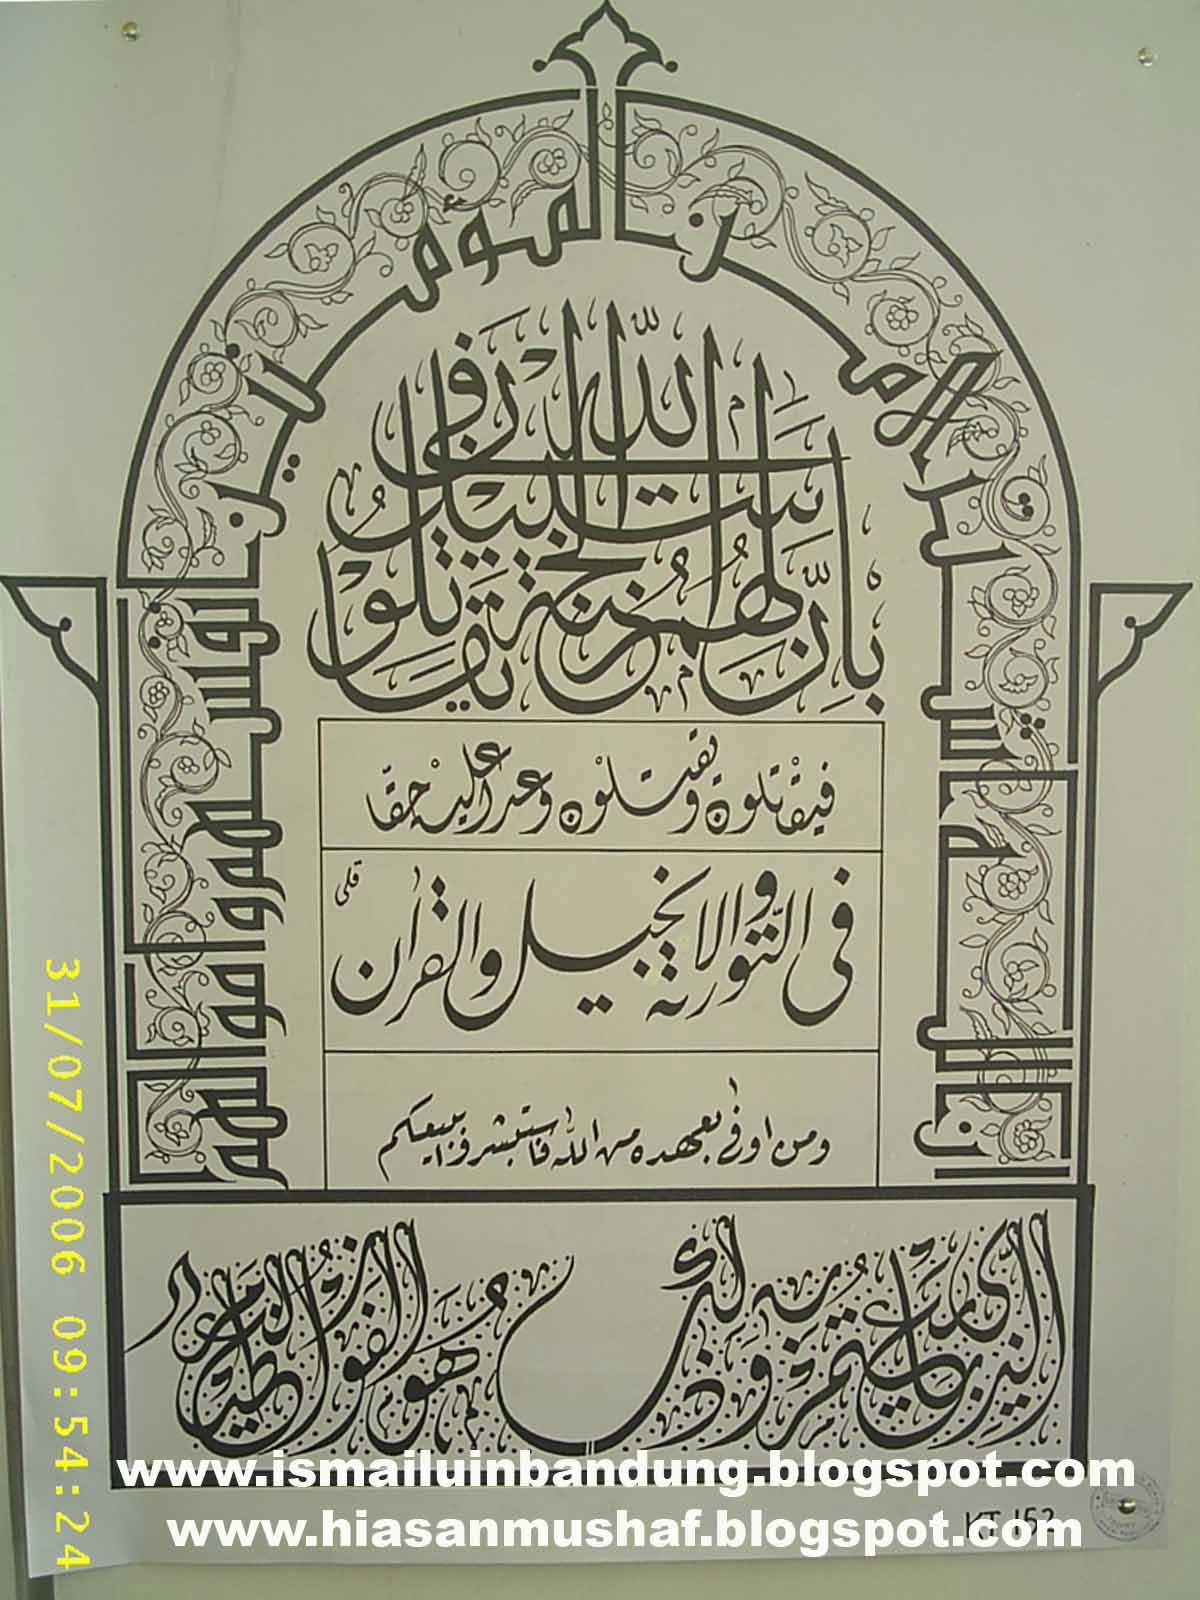 ان الله اشترى من المؤمنين انفسهم واموالهم
بِاَنَّ لهم الجنة يقاتلون في سبيل اللّه
فيقْتلون ويقتلْون وعدا عليه حقّا
فى التّورىة والانجيل والقرآن قلى
ومن اوفى بعهده من الله فاستبشروا ببيعكم
الذي بايعتم به وذلك هو الفوز العظيم
KT 152
31/07/2006 09:54:24
www.ismailuinbandung.blogspot.com
www.hiasanmushaf.blogspot.com